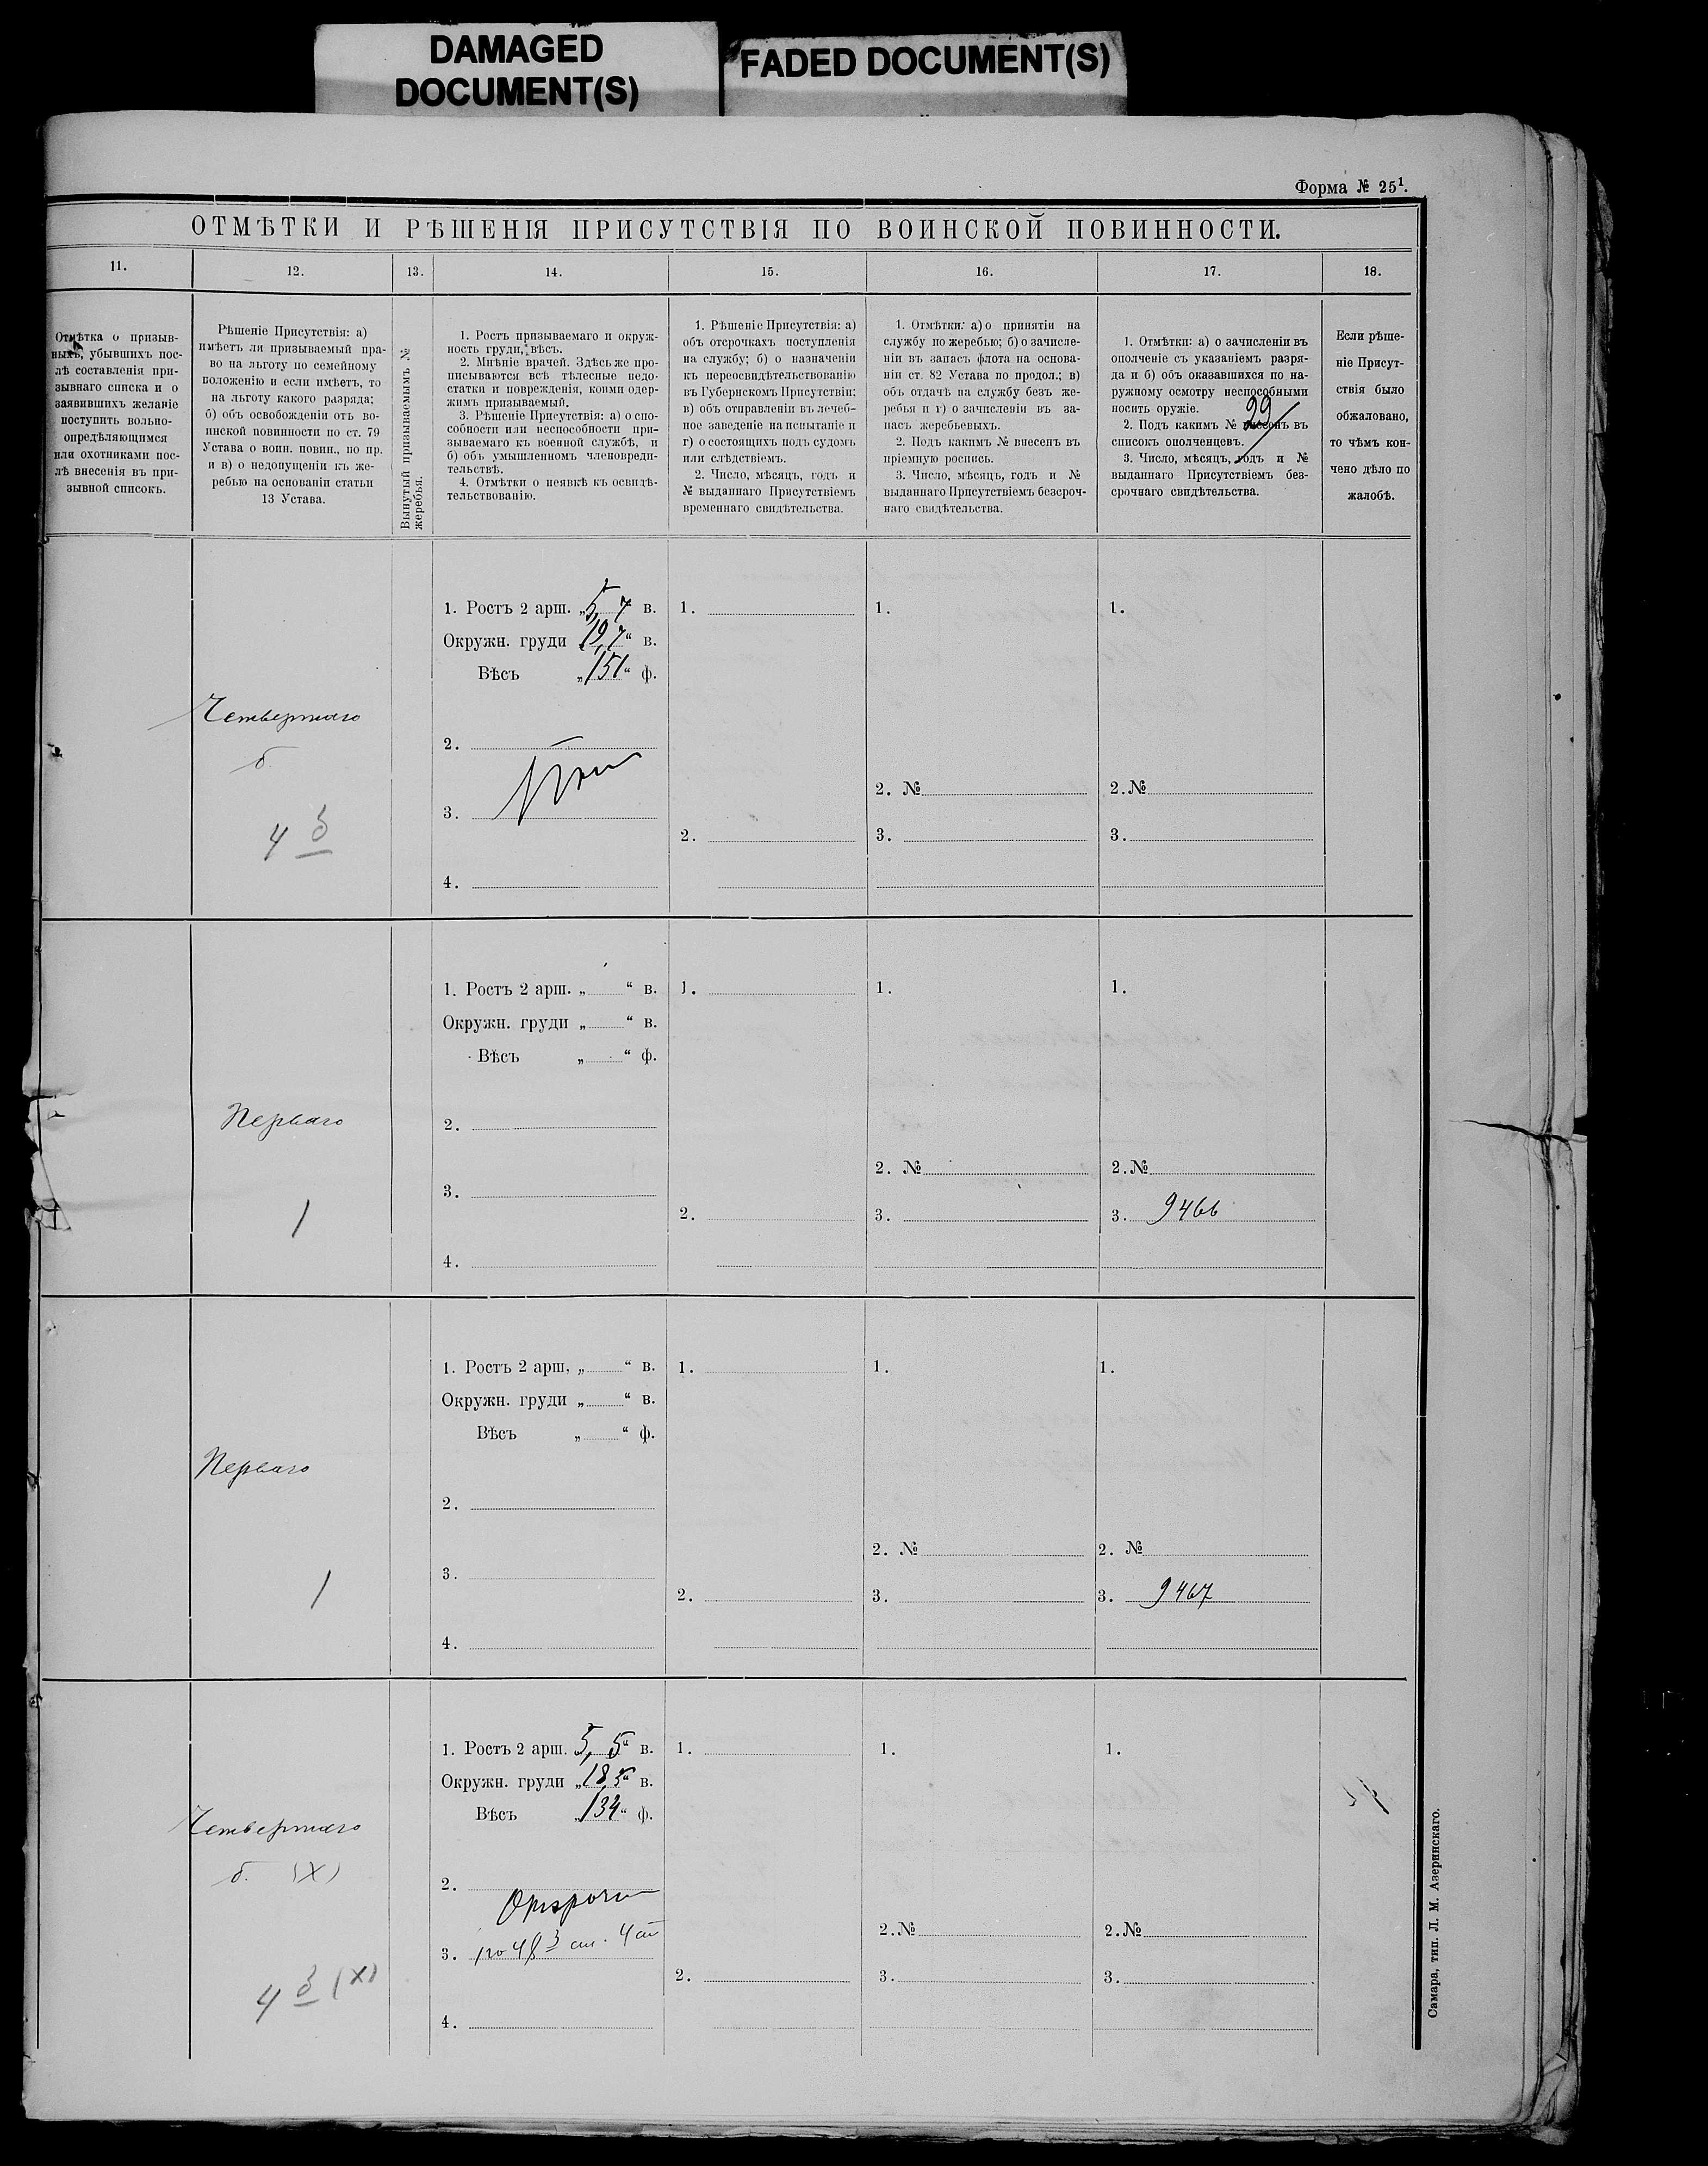 DAMAGED
DOCUMENT(S)
FADED DOCUMENT(S)
Форма № 25¹.
ОТМѢТКИ И РѢШЕНІЯ ПРИСУТСТВІЯ ПО ВОИНСКОЙ ПОВИННОСТИ.
11.
12.
13.
14.
15.
16.
17.
18.
Отмѣтка о призыв-
ныхъ, убывшихъ пос-
лѣ составленія при-
зывнаго списка и о
заявившихъ желаніе
поступить вольно-
опредѣляющимся
или охотниками пос-
лѣ внесенія въ при-
зывной списокъ.
Рѣшеніе Присутствія: а)
имѣетъ ли призываемый пра-
во на льготу по семейному
положенію и если имѣетъ, то
на льготу какого разряда;
б) объ освобожденіи отъ во-
инской повинности по ст. 79
Устава о воин. повин., по пр.
и в) о недопущеніи къ же-
ребью на основаніи статьи
13 Устава.
Вынутый призываемымъ №
жеребья.
1. Ростъ призываемаго и окруж-
ность груди, вѣсъ.
2. Мнѣніе врачей. Здѣсь же про-
писываются всѣ тѣлесные недо-
статки и поврежденія, коими одер-
жимъ призываемый.
3. Рѣшеніе Присутствія: а) о спо-
собности или неспособности при-
зываемаго къ военной службѣ, и
б) объ умышленномъ членовреди-
тельствѣ.
4. Отмѣтки о неявкѣ къ освидѣ-
тельствованію.
1. Рѣшеніе Присутствія: а)
объ отсрочкахъ поступленія
на службу; б) о назначеніи
къ переосвидѣтельствованію
въ Губернскомъ Присутствіи;
в) объ отправленіи въ лечеб-
ное заведеніе на испытаніе и
г) о состоящихъ подъ судомъ
или слѣдствіемъ.
2. Число, мѣсяцъ, годъ и
№ выданнаго Присутствіемъ
временнаго свидѣтельства.
1. Отмѣтки: а) о принятіи на
службу по жеребью; б) о зачисле-
ніи въ запасъ флота на основа-
ніи ст. 82 Устава по продол.; в)
объ отдачѣ на службу безъ же-
ребья и г) о зачисленіи въ за-
пасъ жеребьевыхъ.
2. Подъ какимъ № внесенъ въ
пріемную роспись.
3. Число, мѣсяцъ, годъ и №
выданнаго Присутствіемъ безсроч-
наго свидѣтельства.
1. Отмѣтки: а) о зачисленіи въ
ополченіе съ указаніемъ разря-
да и б) объ оказавшихся по на-
ружному осмотру неспособными
носить оружіе.
29
2. Подъ какимъ № внесенъ въ
списокъ ополченцевъ.
3. Число, мѣсяцъ, годъ и №
выданнаго Присутствіемъ без-
срочнаго свидѣтельства.
Если рѣше-
ніе Присут-
ствія было
обжаловано,
то чѣмъ кон-
чено дѣло по
жалобѣ.
1. Ростъ 2 арш. „5, 7 в.
1.
1.
1.
Окружн. груди 19,7“ в.
Вѣсъ „151“ ф.
Четвертаго
б.
2.
2. №
2.№
3.
4 3
2.
3.
3.
4.
1. Ростъ 2 арш. „ “ в.
1.
1.
1.
Окружн. груди „ “ в.
Вѣсъ „ “ ф.
Перваго
2.
2. №
2.№
3.
1
2.
3.
3. 9466
4.
1. Ростъ 2 арш. „ “ в.
1.
1.
1.
Окружн. груди „ “ в.
Вѣсъ „ “ ф.
Перваго
2.
2. №
2. №
3.
1
2.
3.
3. 9467
4.
1. Ростъ 2 арш. 5, 5“ в.
1.
1.
1.
Окружн. груди „18,5“ в.
Вѣсъ „134“ ф.
Четвертаго
б. (X)
2.
2.№
2.№
3.
4 3 (X)
2.
3.
3.
4.
Самара, тип. Л. М. Азеринскаго.